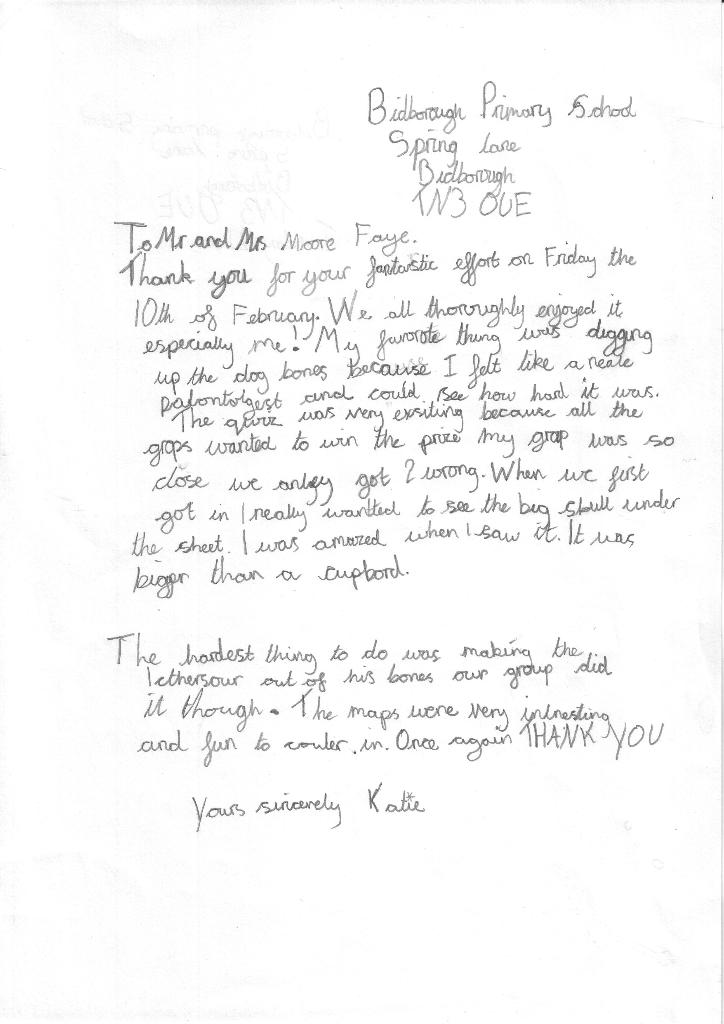 Bidborough Primary School
Spring Lane
Bidborough
TN3 0UE
To Mr and Mrs Moore Faye.
Thank you for your fantastic effort on Friday the
10th of February. We all thoroughly enjoyed it
especially me! My favorote thing was digging
up the dog bones because I felt like a reale
palontolgest and could see how hard it was.
The quiz was very exsiting because all the
grops wanted to win the prize my grop was so
close we onley got 2 wrong. When we first
got in I really wantted to see the big skull under
the sheet. I was amazed when I saw it. It was
bigger than a cupbord.
The hardest thing to do was making the
Icthersour out of his bones our group did
it though. The maps were very intresting
and fun to couler in. Once again THANK YOU
Yours sincerely Katie